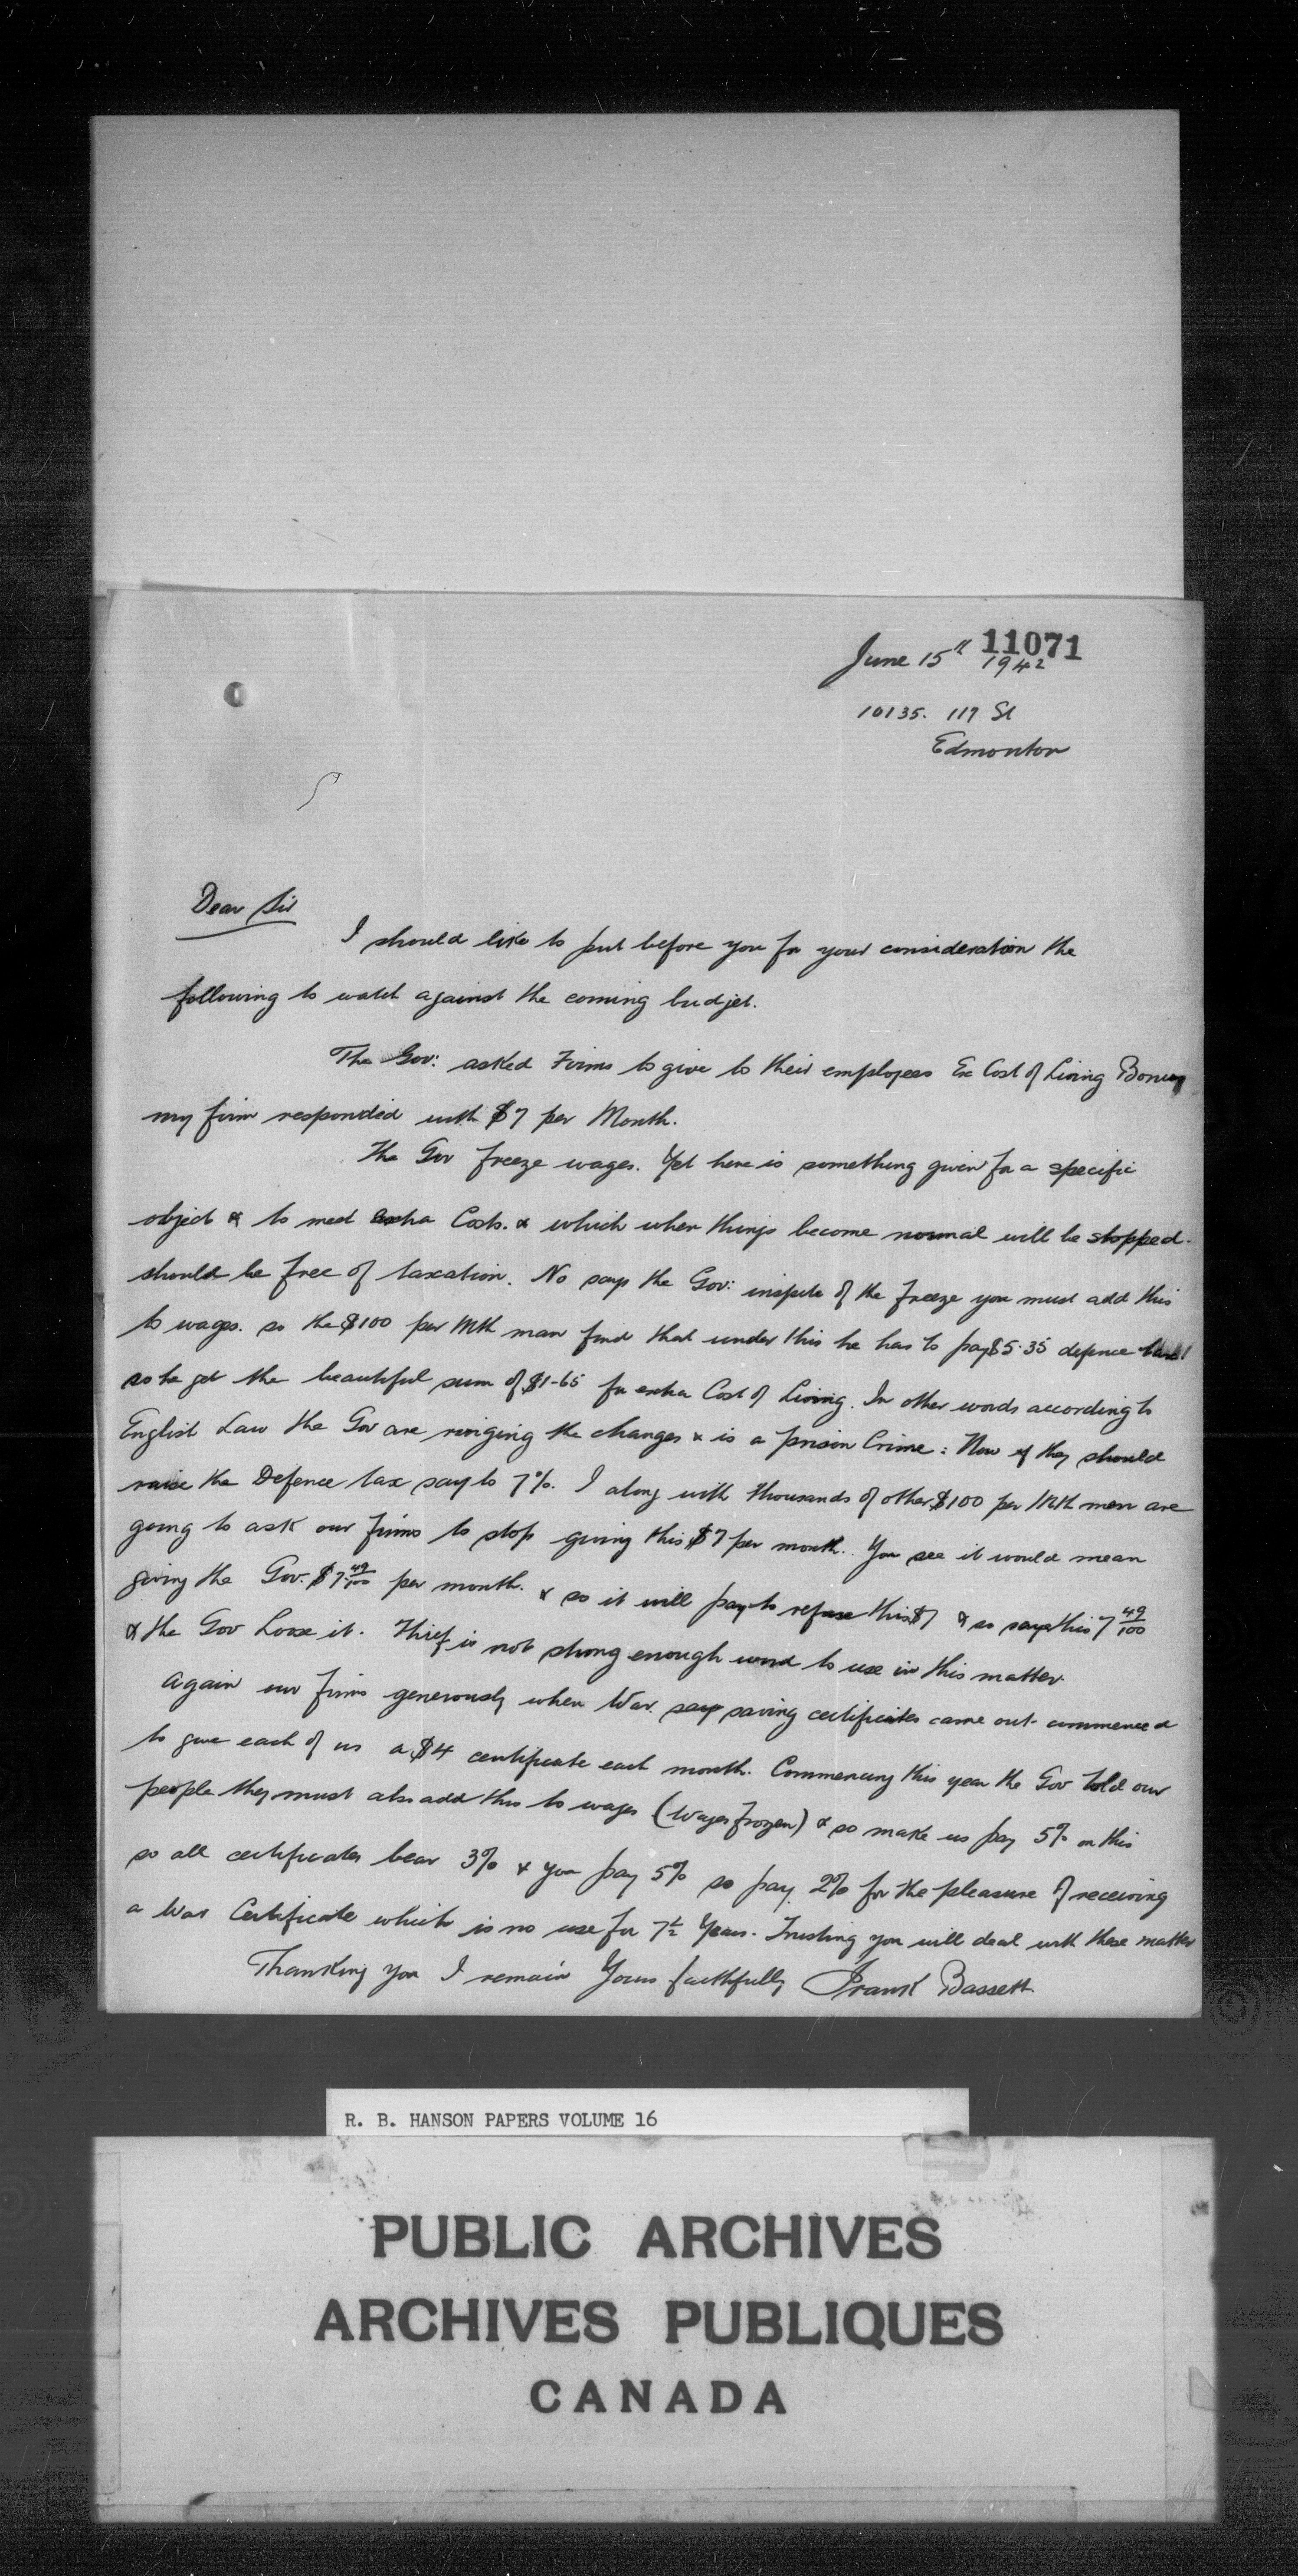 11071
June 15th 1942
10135. 119 St
Edmonton
Dear Sir
I should like to put before you for your consideration the
following to watch against the coming budget.
The Gov: asked Firms to give to their employees Ex Cost of Living Bonus
my firm responded with $7 per Month.
The Gov freeze wages. Yet here is something given for a specific
object & to meet extra Costs. & which when things become normal will be stopped.
should be free of taxation. No says the Gov: inspite of the freeze you must add this
to wages. so the $100 per Mth man find that under this he has to pay $5.35 defence tax
so he get the beautiful sum of $1-65 for extra Cost of Living. In other words according to
English Law the Gov are ringing the changes & is a prison Crime: Now if they should
raise the Defence tax say to 7%. I along with thousands of other $100 per Mth men are
going to ask our firms to stop giving this $7 per month. You see it would mean
giving the Gov. $7 49/100 per month. & so it will pay to refuse this $7 & so save this 7 49/100
& the Gov Loose it. Thief is not strong enough word to use in this matter.
Again our firms generously when War saving certificates came out commenced
to give each of us a $4 certificate each month. Commencing this year the Gov told our
people they must also add this to wages (Wages frozen) & so make us pay 5% on this
so all certificates bear 3% & you pay 5% so pay 2% for the pleasure of receiving
a War Certificate which is no use for 7½ Years. Trusting you will deal with these matter
Thanking you I remain Yours faithfully Frank Bassett.
R. B. HANSON PAPERS VOLUME 16
PUBLIC ARCHIVES
ARCHIVES PUBLIQUES
CANADA